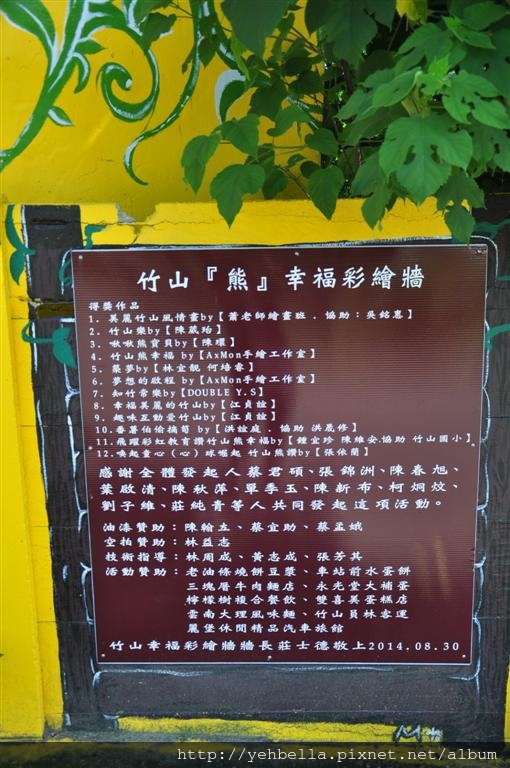 竹山『熊』幸福彩繪牆
得獎作品
1. 美麗竹山風情畫by【蕭老師繪畫班．協助：吳銘惠】
2. 竹山樂by【陳葳珆】
3. 啾啾熊寶貝by【陳環】
4. 竹山熊幸福 by【AxMon手繪工作室】
5. 築夢by【林宜靚 何培睿】
6. 夢想的啟程 by【AxMon手繪工作室】
7. 知竹常樂by【DOUBLE Y.S】
8. 幸福美麗的竹山by【江貞誼】
9. 趣味互動愛竹山by【江貞誼】
10.番薯伯偷摘筍 by【洪誼庭．協助 洪晟修】
11.飛躍彩虹教育讚竹山熊幸福by【鍾宜珍 陳維安.協助 竹山國小】
12.喚起童心(心)球崛起 竹山熊讚by【張依蘭】
感謝全體發起人蔡君碩、張錦洲、陳春旭、
葉啟清、陳秋萍、單季玉、陳新布、柯炯炆、
劉子維、莊純青等人共同發起這項活動。
油漆贊助：陳翰立、蔡宜助、蔡孟娥
空拍贊助：林益志
技術指導：林周成、黃志成、張芳其
活動贊助：老油條燒餅豆漿、車站前水蛋餅
三塊厝牛肉麵店、永光堂大補蛋
檸檬樹複合餐飲、雙喜美蛋糕店
雲南大理風味麵、竹山員林客運
麗堡休閒精品汽車旅館
竹山幸福彩繪牆牆長莊士德敬上2014.08.30
http://yehbella.pixnet.net/album